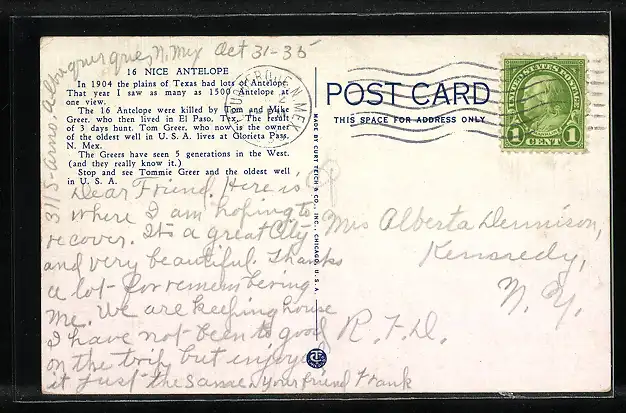 Albuquerque, N. Mex Oct 31-35
3115-arno.
16 NICE ANTELOPE
In 1904 the plains of Texas had lots of Antelope.
That year I saw as many as 1500 Antelope at
one view.
The 16 Antelope were killed by Tom and Mike
Greer, who then lived in El Paso, Tex. The result
of 3 days hunt. Tom Greer, who now is the owner
of the oldest well in U. S. A. lives at Glorieta Pass,
N. Mex.
The Greers have seen 5 generations in the West.
(and they really know it.)
Stop and see Tommie Greer and the oldest well
in U. S. A.
Dear Friend, Here is
where I am hoping to
recover. Its a great City
and very beautiful. Thanks
a lot for remembering
me. We are keeping house
I have not been to good
on the trip but enjoyed
it just the same your friend Frank
MADE BY CURT TEICH & CO., INC., CHICAGO, U. S. A.
POST CARD
THIS SPACE FOR ADDRESS ONLY
UNITED STATES POSTAGE
1 CENT 1
Mrs Alberta Dennison,
Kennedy,
N. Y.
R. F. D.